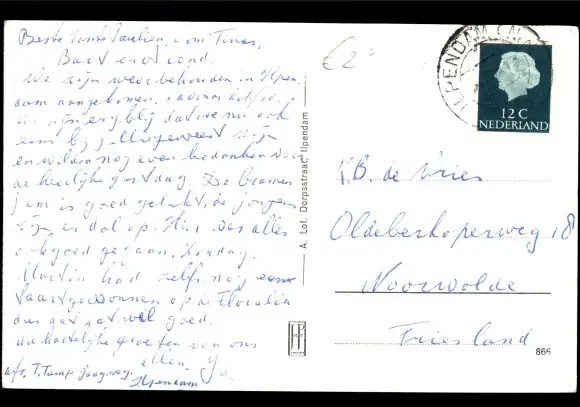 Beste Tante Paulien, oom Tinus,
Bart en
We zijn weer behouden in Ilpen
dam aangekomen.
zijn erg blij dat we nu ook
eens bij jullie geweest zijn
en willen nog even bedanken voor
de heerlijke gastdag. De bramen
jam is goed gelukt, de jongens
zijn er dol op. was alles
ook goed gegaan, Zondag.
Martin had zelfs nog een
taart gewonnen op de
dus dat gaat wel goed.
de hartelijke groeten van ons
allen.
afz. T. Jaagweg
Ilpendam
€2=
A. Lof, Dorpsstraat, Ilpendam
ILPENDAM (N
12 C
NEDERLAND
K.B. de Vries
Oldeberkoperweg 18
Noorwolde
Friesland
866